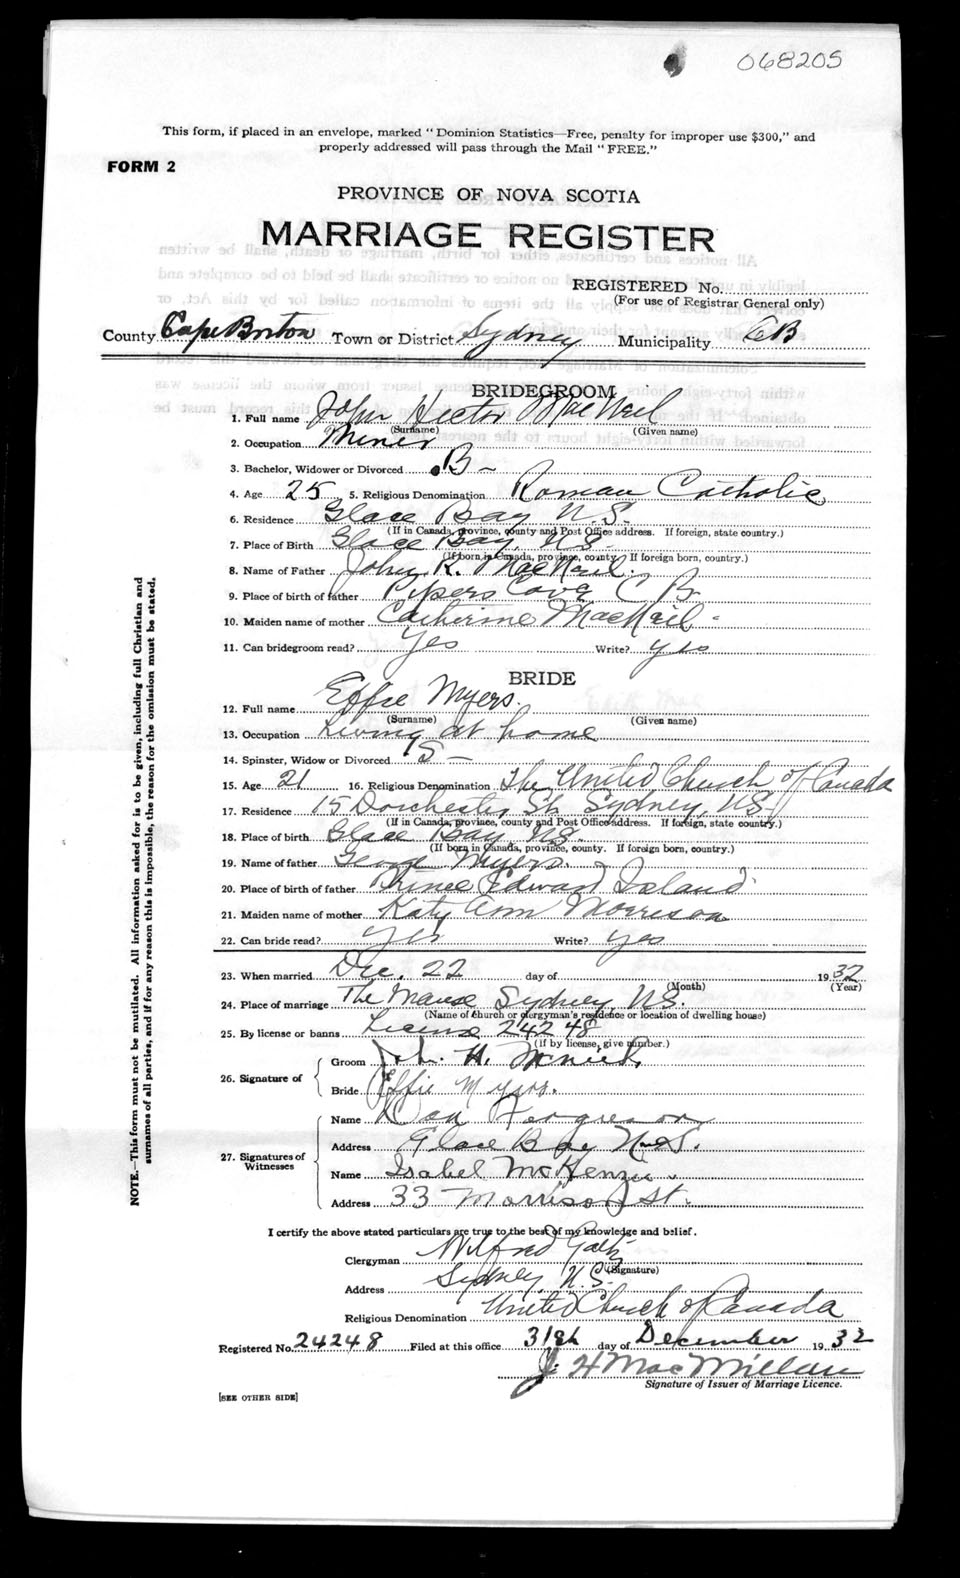 068205
This form, if placed in an envelope, marked "Dominion Statistics—Free, penalty for improper use $300," and
properly addressed will pass through the Mail "FREE."
FORM 2
PROVINCE OF NOVA SCOTIA
MARRIAGE REGISTER
REGISTERED No.
(For use of Registrar General only)
County Cape Breton Town or District Sydney Municipality CB
BRIDEGROOM
1. Full name John Hector MacNeil
(Surname) (Given name)
2. Occupation Miner
3. Bachelor, Widower or Divorced B -
4. Age 25 5. Religious Denomination Roman Catholic
6. Residence Glace Bay N.S.
(If in Canada, province, county and Post Office address. If foreign, state country.)
7. Place of Birth Glace Bay, N.S.
(If born in Canada, province, county. If foreign born, country.)
8. Name of Father John R. MacNeil.
9. Place of birth of father Pipers Cove C B.
10. Maiden name of mother Catherine MacNeil
11. Can bridegroom read? Yes Write? yes
BRIDE
12. Full name Effie Myers.
(Surname) (Given name)
13. Occupation Living at home
14. Spinster, Widow or Divorced S -
15. Age 21 16. Religious Denomination The United Church of Canada
17. Residence 15 Dorchester St. Sydney, N.S.
(If in Canada, province, county and Post Office address. If foreign, state country.)
18. Place of birth Glace Bay N.S.
(If born in Canada, province, county. If foreign born, country.)
19. Name of father George Myers.
20. Place of birth of father Prince Edward Island
21. Maiden name of mother Katy Ann Morrison
22. Can bride read? Yes Write? Yes
23. When married Dec. 22 day of 1932
(Month) (Year)
24. Place of marriage The Manse Sydney N.S.
(Name of church or clergyman's residence or location of dwelling house)
25. By license or banns License 24248
(if by license, give number.)
26. Signature of
Groom John H.
Bride Effie Myers.
27. Signatures of
Witnesses
Name Dan Ferguson
Address Glace Bay N.S.
Name Isabel McKenzie
Address 33 Morrison St.
I certify the above stated particulars are true to the best of my knowledge and belief.
Clergyman Wilfred
(Signature)
Address Sydney, N.S.
Religious Denomination United Church of Canada
Registered No. 24248 Filed at this office 31st day of December 1932
J. H MacMillan
Signature of Issuer of Marriage Licence.
[SEE OTHER SIDE]
NOTE.—This form must not be mutilated. All information asked for is to be given, including full Christian and
surnames of all parties, and if for any reason this is impossible, the reason for the omission must be stated.